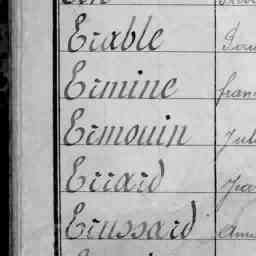 Erable
Ermine fran
Ermouin Jul
Errard
Erussard